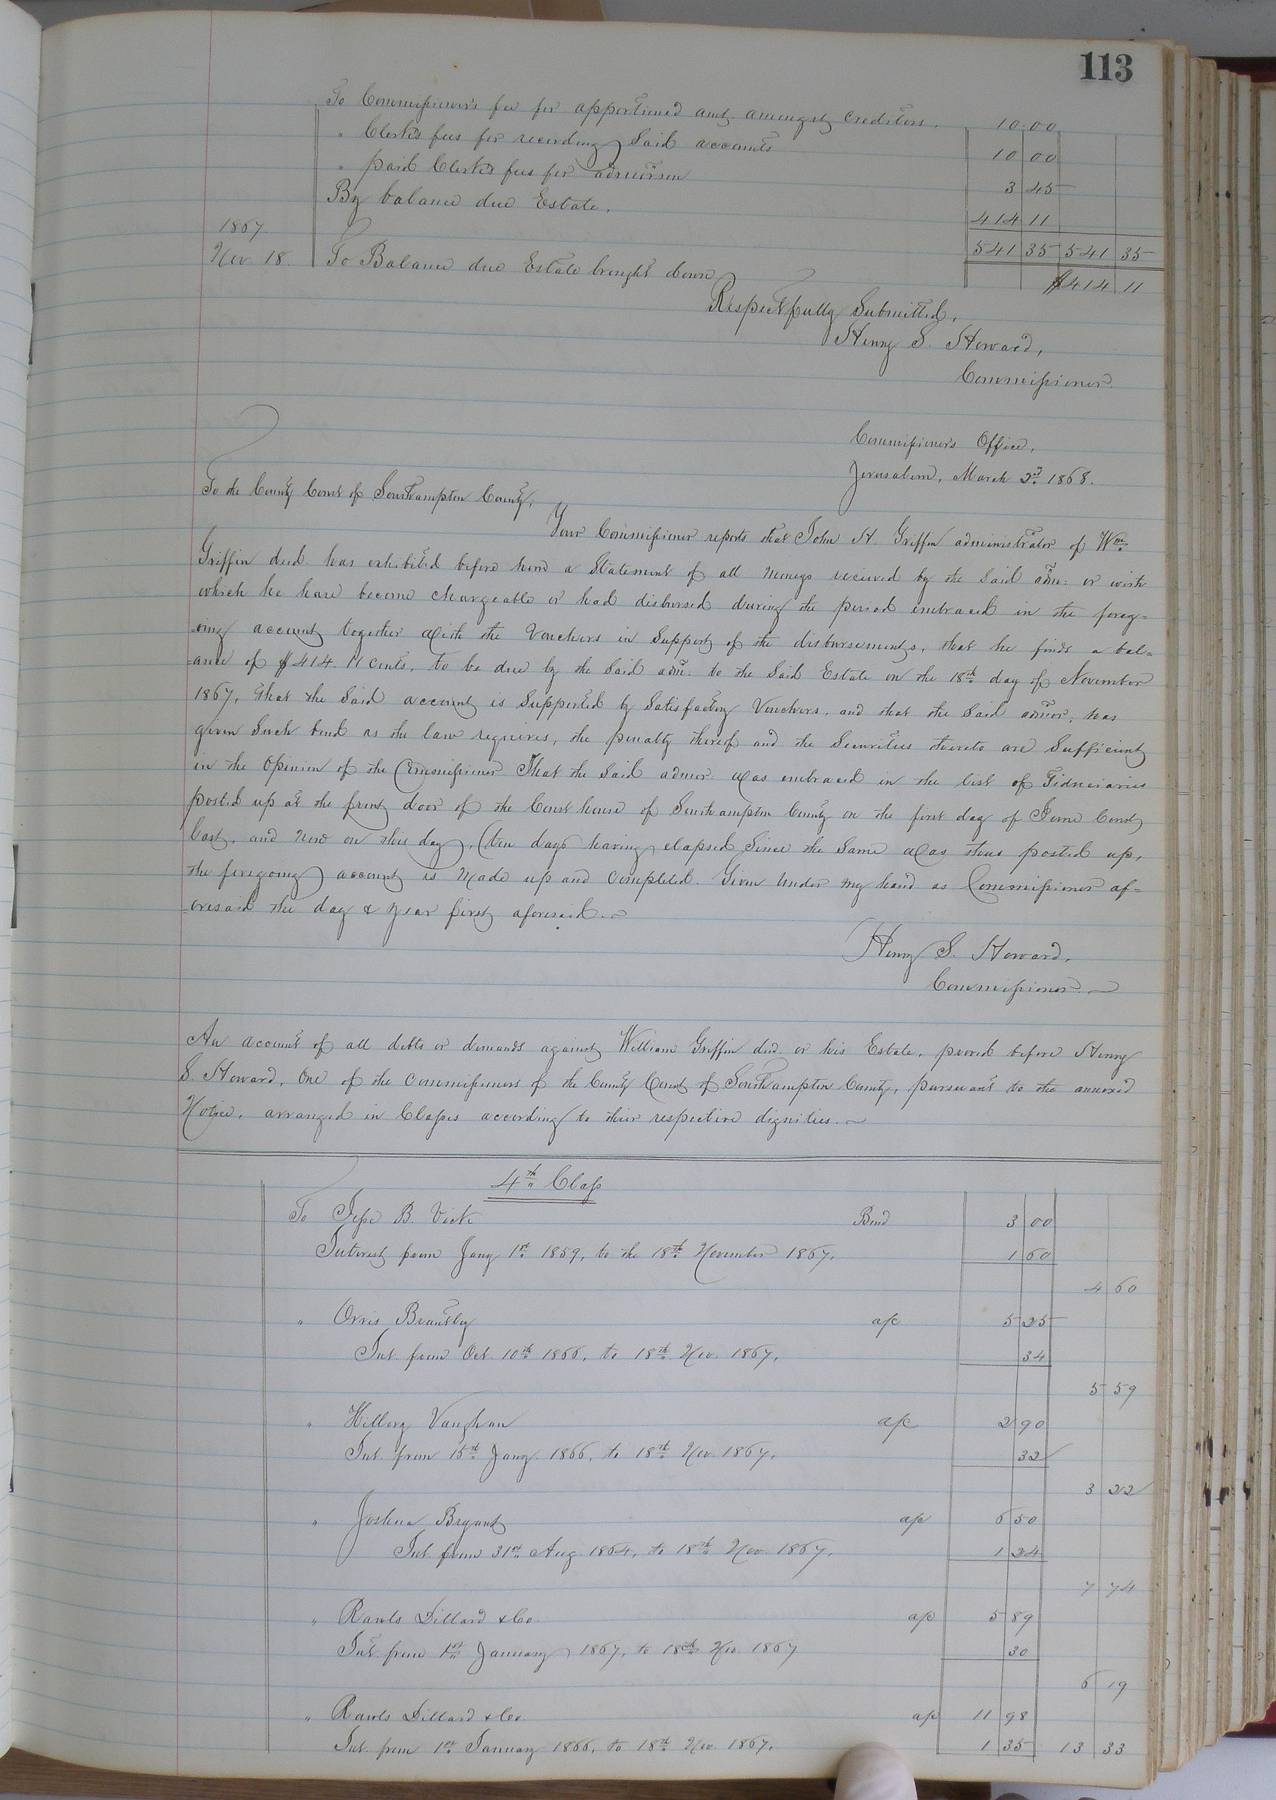 113
To Commissioner's fee for apportioned amt amongst creditors. 10 00
" Clerk's fees for recording said accounts 10 00
" paid Clerk's fees for admorsn 3 45
By balance due Estate. 414 11
1867 541 35 541 35
Nov. 18. To Balance due Estate brought down $414 11
Respectfully Submitted,
Henry S. Howard,
Commissioner.
Commissioner's Office,
Jerusalem, March 2d 1868.
To the County Court of Southampton County,
Your Commissioner reports that John H. Griffin administrator of Wm
Griffin decd. has exhibited before him a Statement of all moneys received by the said adm: or with
which he have become chargeable or had disbursed during the period embraced in the foreg=
oing account together with the Vouchers in Support of the disbursements, that he finds a bal=
ance of $414.11 cents, to be due by the said adm: to the said Estate on the 18th day of November
1867, that the said account is Supported by Satisfactory Vouchers, and that the said admor, has
given such bond as the law requires, the penalty thereof and the Securities thereto are Sufficient
in the opinion of the Commissioner That the said admor was embraced in the list of Fiduciaries
posted up at the front door of the Courthouse of Southampton County on the first day of June Court
last, and now on this day, (ten days having elapsed since the same was thus posted up,
the foregoing account is made up and completed. Given under my hand as Commissioner af=
oresaid the day & year first aforesaid.
Henry S. Howard,
Commissioner.
An account of all debts or demands against William Griffin decd. or his Estate, proved before Henry
S. Howard, One of the commissioners of the County Court of Southampton County, pursuant to the annexed
Notice, arranged in Classes according to their respective dignities.
4th Class
To Jesse B. Vick Bond 3 00
Interest from Jany 1st 1859, to the 18th November 1867. 1 60
4 60
" Orris Brantley a/c 5 25
Int. from Oct. 10th 1866, to 18th Nov. 1867. 34
5 59
" Hillory Vaughan a/c 2 90
Int. from 15th Jany. 1866, to 18th Nov. 1867. 32
3 22
" Joshua Bryant a/c 6 50
Int. from 31st Aug. 1864, to 18th Nov. 1867. 1 24
7 74
" Rawls Dillard & Co. a/c 5 89
Int. from 1st January 1867, to 18th Nov. 1867 30
6 19
" Rawls Dillard & Co. a/c 11 98
Int. from 1st January 1866, to 18th Nov. 1867. 1 35 13 33